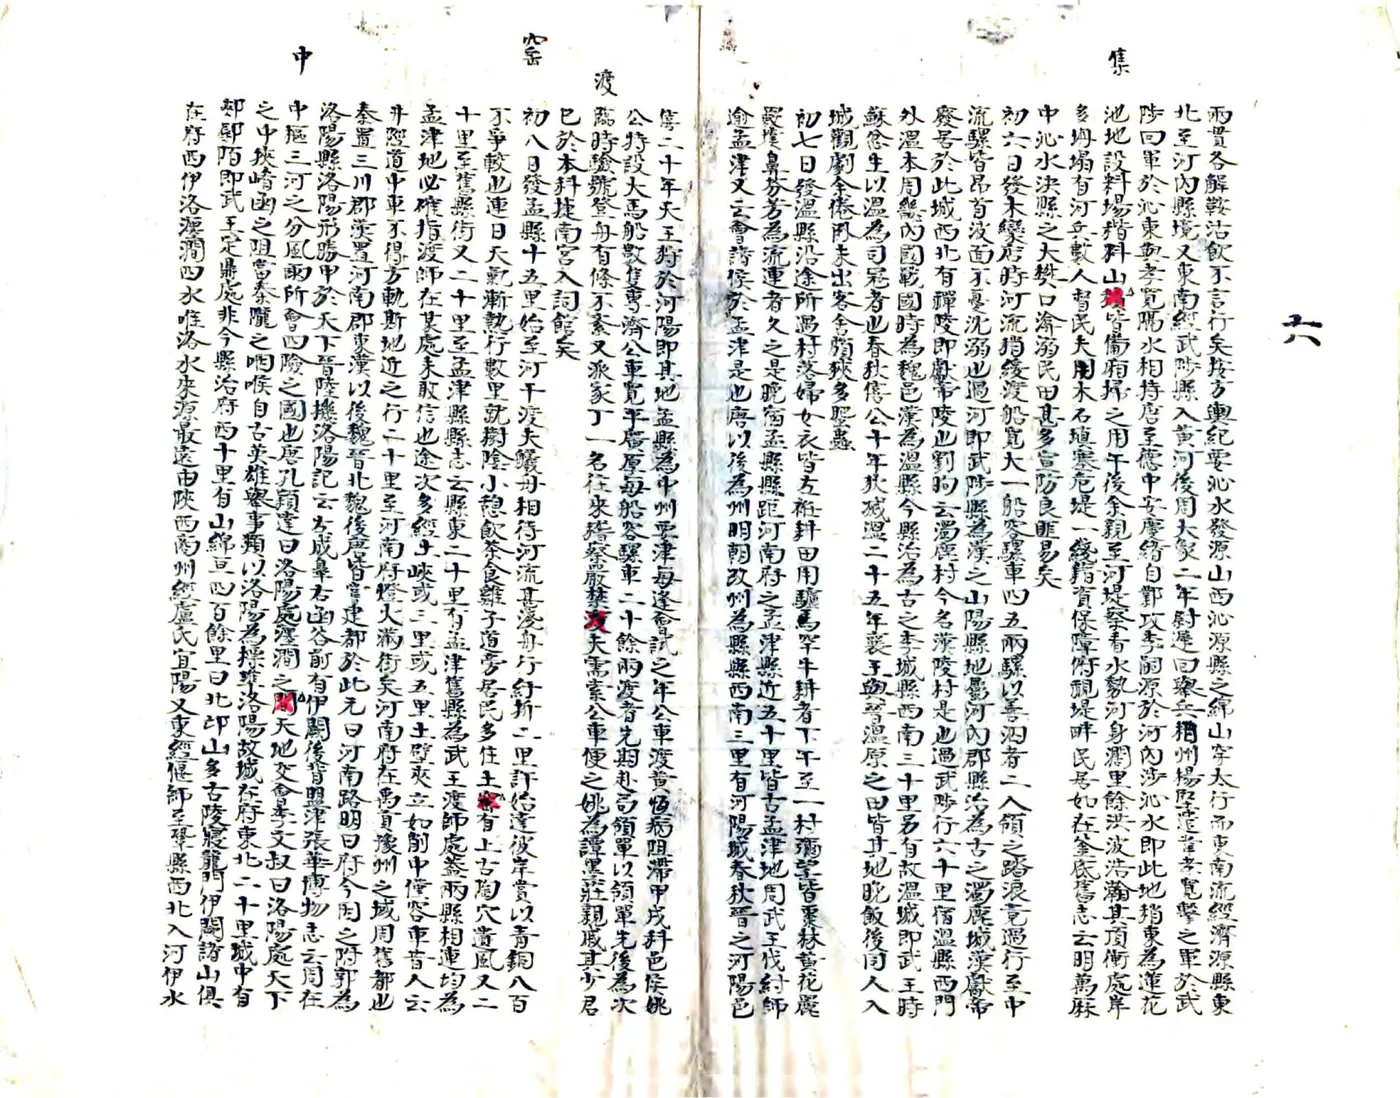 六
集
兩貫各解鞍沽飲不言行矣按方輿紀要沁水發源山西沁源縣之綿山穿太行而東南流經濟源縣東
北至河內縣境又東南經武陟縣入黃河後周大象二年尉遲迥舉兵相州楊堅遣韋孝寬擊之軍於武
陟迥軍於沁東與孝寬隔水相持唐至德中安慶緒自鄴攻李嗣源於河內涉沁水即此地稍東為蓮花
池地設料場楷料山積皆備廂埽之用午後余親至河堤察看水勢河身濶里餘洪波浩瀚其頂衝處岸
多坍塌有河兵數人督民夫用木石填塞危堤一綫藉資保障俯視堤畔民居如在釜底舊志云明萬厤
中沁水決縣之大樊口渰溺民田甚多宣防良匪易矣
初六日發木欒店時河流稍緩渡船寬大一船容騾車四五兩騾以善泅者二人領之踏浪竟過行至中
流騾皆昂首波面不憂沈溺也過河即武陟縣為漢之山陽縣地屬河內郡縣治為古之濁鹿城漢獻帝
廢居於此城西北有禪陵即獻帝陵也劉昫云濁鹿村今名漢陵村是也過武陟行六十里宿溫縣西門
外溫本周畿內國戰國時為魏邑漢為溫縣今縣治為古之李城縣西南三十里另有故溫城即武王時
蘇忿生以溫為司寇者也春秋僖公十年狄滅溫二十五年襄王與晉溫原之田皆其地晚飯後同人入
城觀劇余倦卧未出客舍頗狹多壁蝨
初七日發溫縣沿途所過村落婦女衣皆左衽耕田用驢馬罕牛耕者下午至一村彌望皆棗林黃花麗
霞撲鼻芬芳為流連者久之是晚宿孟縣縣距河南府之孟津縣近五十里皆古孟津地周武王伐紂師
逾孟津又云會諸侯於孟津是也唐以後為州明朝改州為縣縣西南三里有河陽城春秋晉之河陽邑
雋二十年天王狩於河陽即其地孟縣為中州要津每逢會試之年公車渡黃恆病阻滯甲戌科邑侯姚
公特設大馬船數隻專濟公車寬平廣厚每船容騾車二十餘兩渡者先期赴局領單以領單先後為次
渡
臨時驗號登舟有條不紊又派家丁一名往來稽察嚴禁渡夫需索公車便之姚為譚黑莊親戚其少君
已於本科捷南宮入詞館矣
窰
初八日發孟縣十五里始至河干渡夫艤舟相待河流甚淺舟行紆折二里許始達彼岸賞以青銅八百
不爭較也連日天氣漸熱行數里就樹陰小憩飲茶食雞子道旁居民多住土窰有上古陶穴遺風又二
十里至舊縣街又二十里至孟津縣縣志云縣東二十里有孟津舊縣為武王渡師處蓋兩縣相連均為
孟津地必確指渡師在某處未敢信也途次多經土峽或三里或五里土壁夾立如削中僅容車昔人云
井陘道中車不得方軌斯地近之行二十里至河南府燈火滿街矣河南府在禹貢豫州之域周舊都也
秦置三川郡漢置河南郡東漢以後魏晉北魏後唐皆嘗建都於此元曰河南路明曰府今因之附郭為
洛陽縣洛陽形勝甲於天下晉陸機洛陽記云左成皋右函谷前有伊闕後背盟津張華博物志云周在
中
中樞三河之分風雨所會四險之國也唐孔穎達曰洛陽處瀍澗之間天地交會摯文叔曰洛陽處天下
之中挾崤函之阻當秦隴之咽喉自古英雄舉事類以洛陽為樞璣洛陽故城在府東北二十里城中有
郟鄏陌即武王定鼎處非今縣治府西十里有山綿亘四百餘里曰北邙山多古陵寢龍門伊闕諸山俱
在府西伊洛瀍澗四水唯洛水來源最遠由陝西商州經盧氏宜陽又東經偃師至鞏縣西北入河伊水